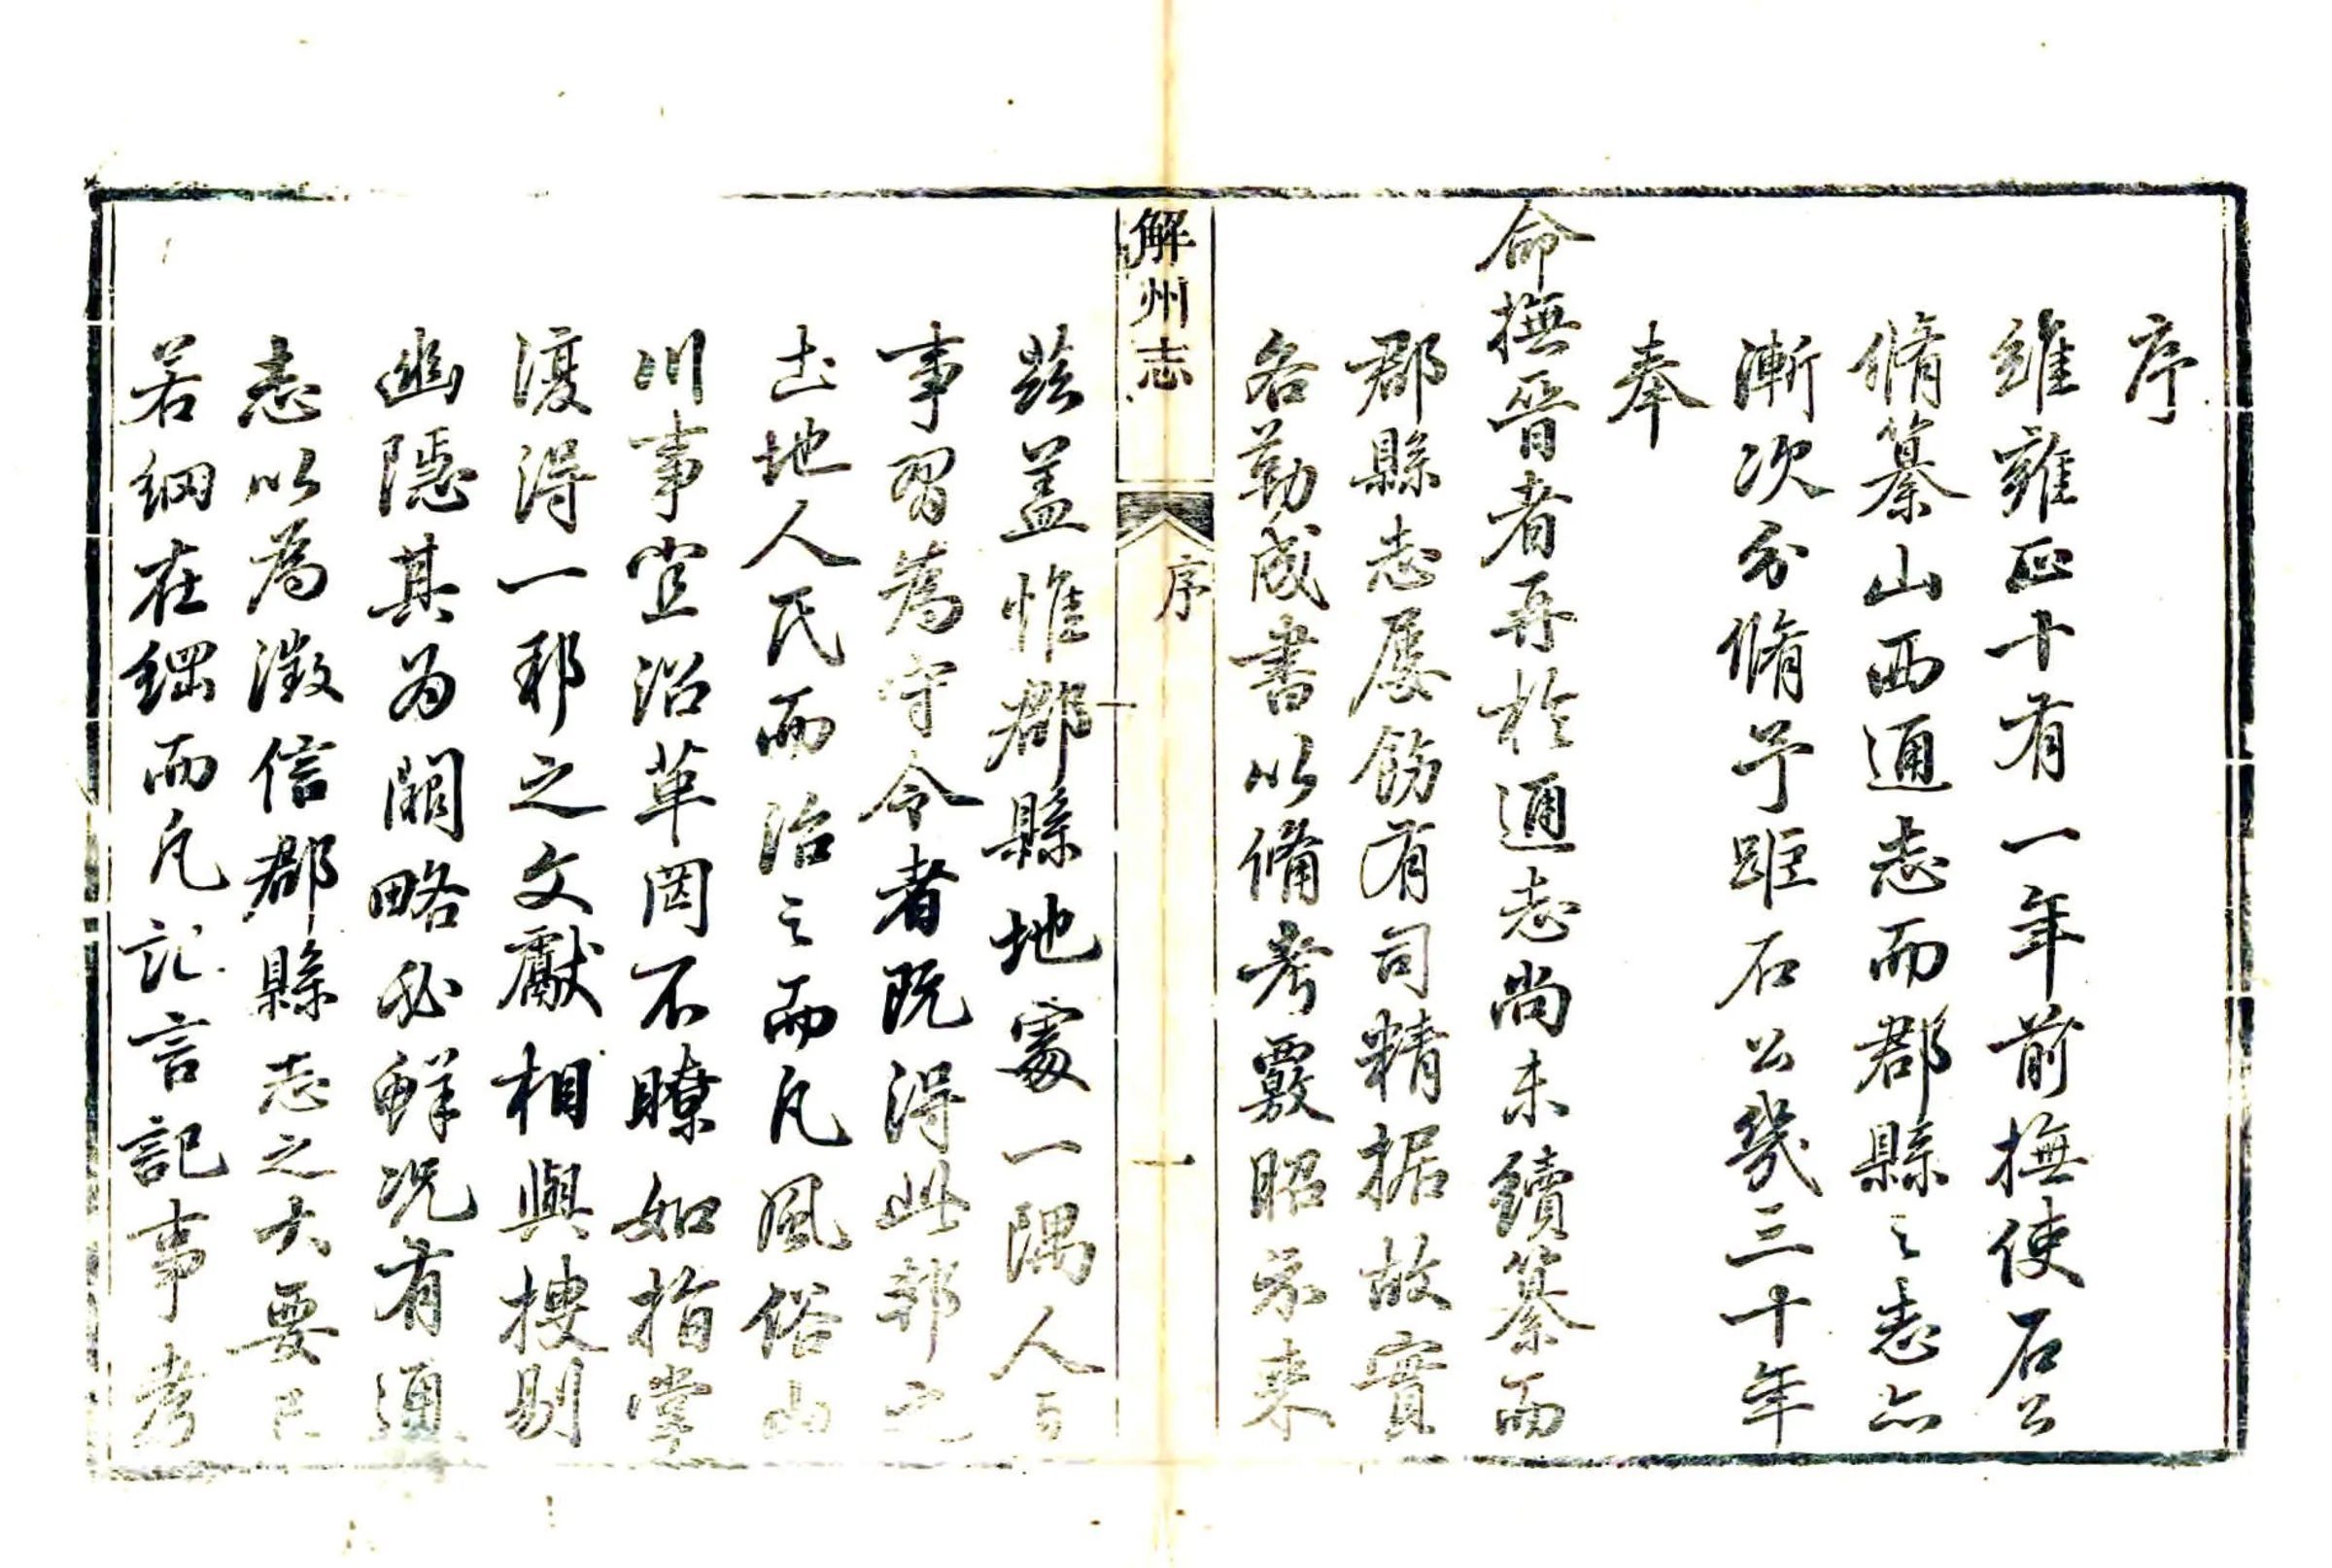 序
維雍正十有一年前撫使石公
脩纂山西通志而郡縣之志亦
漸次分脩予距石公幾三十年
奉
命撫晉者再於通志尚未續纂而
郡縣志屡飭有司精据故實
各勒成書以脩考覈昭示来
解州志
序
一
茲盖惟郡縣地處一隅人与
事習為守令者既得此邦之
土地人民而治之而凡風俗山
川事宜沿革罔不瞭如指掌
復得一邦之文獻相與搜剔
幽隱其为闕略必鮮况有通
志以為徵信郡縣志之大要已
若綱在綱而凡記言記事考